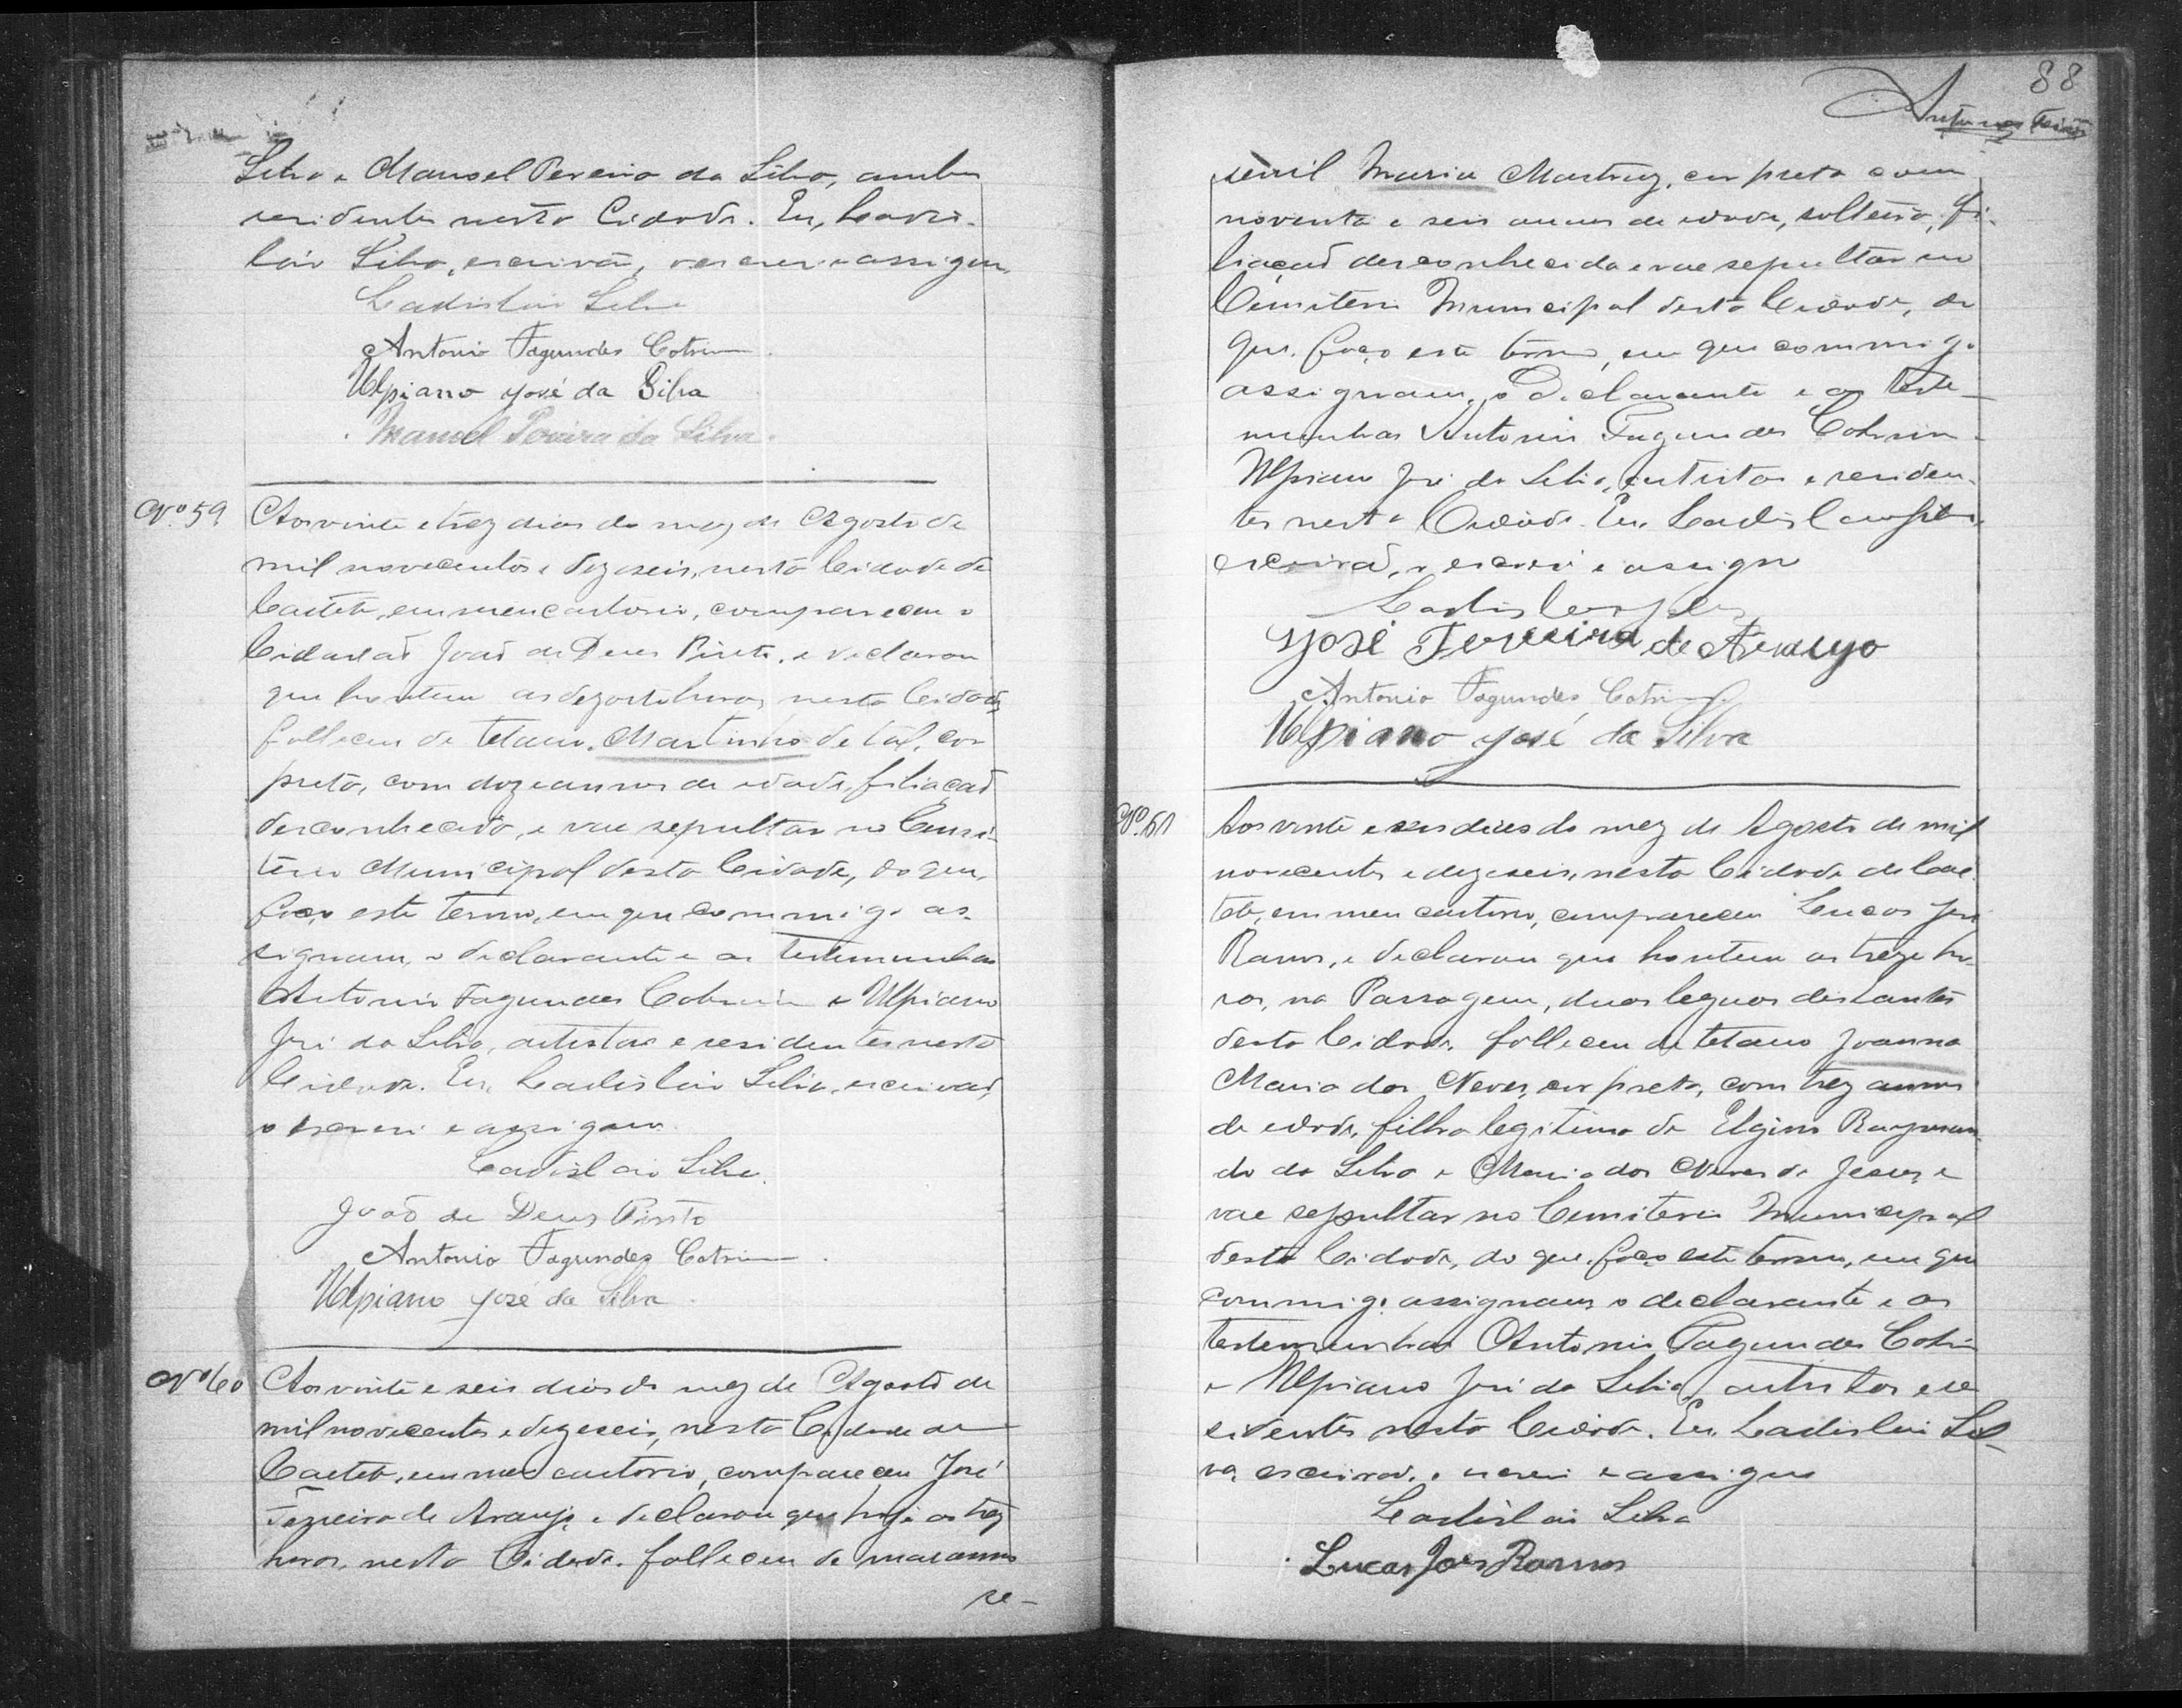 Silva e Manoel Pereira da Silva, ambos
residentes nesta Cidade. Eu, Ladis-
láu Silva, escrivão, o escrevi e assigno.
Ladisláu Silva
Antonio Fagundes Cotrim
Ulpiano José da Silva
Manoel Pereira da Silva.
Nº 59
Aos vinte e trez dias do mez de Agosto de
mil novecentos e dezeseis, nesta Cidade de
Caeteté, em meu cartorio, compareceu o
Cidadaõ Joaõ de Deus Pinto, e declarou
que hontem as dezoito horas, nesta Cidade,
falleceu de tetano, Martinho de tál, cor
preta, com doze annos de edade, filiaçaõ
desconhecida, e vae sepultar no Cemi-
terio Municipal desta Cidade, do que,
faço este termo, em que commigo as-
signam, o declarante e as testemunhas
Antonio Fagundes Cotrim e Ulpiano
José da Silva, artistas e residentes nesta
Cidade. Eu, Ladisláu Silva, escrivaõ,
o escrevi e assigno.
Ladisláu Silva.
Joaõ de Deus Pinto
Antonio Fagundes Cotrim
Ulpiano José da Silva
Nº 60
Aos vinte e seis dias do mez de Agosto de
mil novecentos e dezeseis, nesta Cidade de
Caeteté, em meu cartorio, compareceu José
Ferreira de Araujo, e declarou que hoje as trez
horas, nesta Cidade, falleceu de marasmo
se-
88
senil Maria Martins, cor preta com
noventa e seis annos de edade, solteira, fi-
liaçaõ desconhecida e vae sepultar no
Cemiterio Municipal desta Cidade, do
que, faço este termo, em que commigo
assignam, o declarante e as teste-
munhas Antonio Fagundes Cotrim
Ulpiano José da Silva, artistas e residen-
tes nesta Cidade. Eu, Ladisláu Silva,
escrivaõ, o escrevi e assigno
Ladisláu Silva
José Ferreira de Araujo
Antonio Fagundes Cotrim
Ulpiano José da Silva
Nº 61
Aos vinte e seis dias do mez de Agosto de mil
novecentos e dezeseis, nesta Cidade de Cae-
teté, em meu cartorio, compareceu Lucas José
Ramos, e declarou que hontem as treze ho-
ras, na Passagem, duas leguas distantes
desta Cidade, falleceu de tetano Joanna
Maria das Neves, cor preta, com trez annos
de edade, filha legitima de Elgino Raymun-
do da Silva e Maria das Neves de Jesus, e
vae sepultar no Cemiterio Municipal
desta Cidade, do que, faço este termo, em que
commigo assignam o declarante e as
testemunhas Antonio Fagundes Cotrim
e Ulpiano José da Silva, artistas e re-
sidentes nesta Cidade. Eu, Ladisláu Sil-
va, escrivaõ, o escrevi e assigno
Ladisláu Silva
Lucas José Ramos